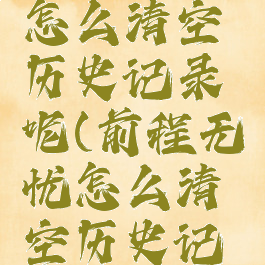 怎么清空
历史记录
呢(前程无
忧怎么清
空历史记